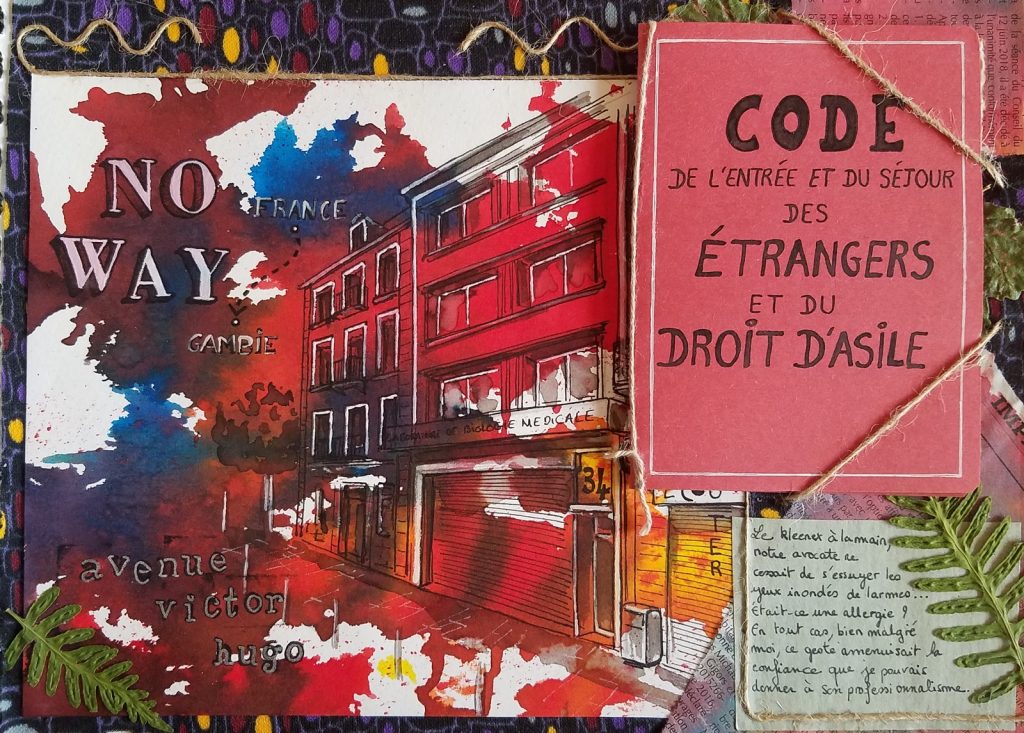 NO
WAY
FRANCE
GAMBIE
LABORATOIRE DE BIOLOGIE MEDICALE
34
avenue
victor
hugo
CODE
DE L'ENTRÉE ET DU SÉJOUR
DES
ÉTRANGERS
ET DU
DROIT D'ASILE
TER
Le kleenex à la main,
notre avocate ne
cessait de s'essuyer les
yeux inondés de larmes...
Était-ce une allergie ?
En tout cas, bien malgré
moi, ce geste amenuisait la
confiance que je pouvais
donner à son professionnalisme.
de la séance du Conseil du
12 juin 2018, il a été décidé à
l'unanimité que